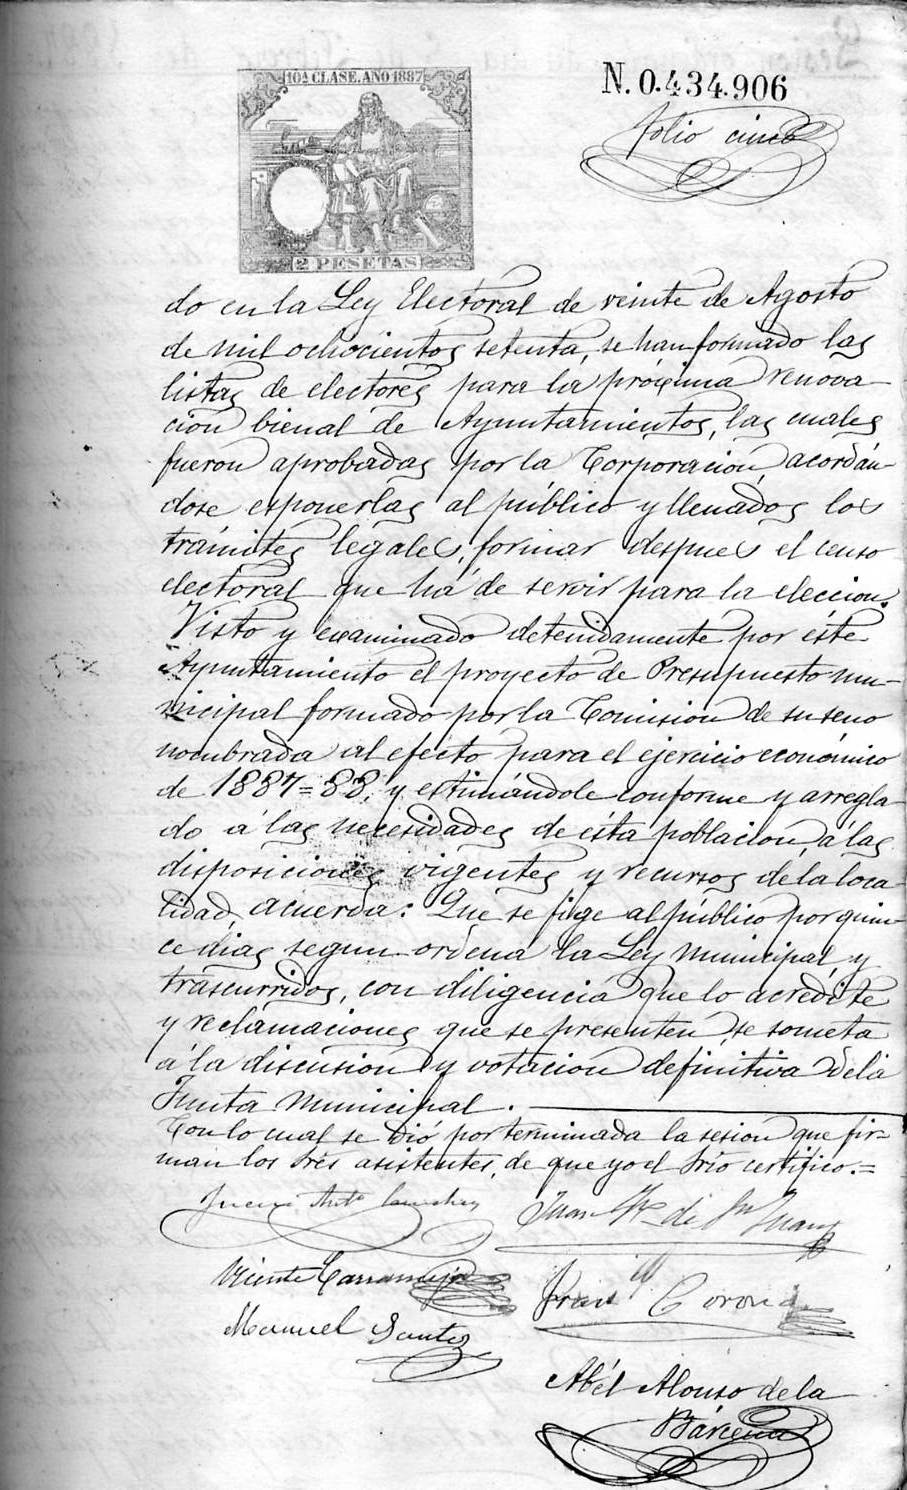 10ª CLASE. AÑO 1887
N. 0.434.906
folio cinco
2 PESETAS
do en la Ley Electoral de veinte de Agosto
de mil ochocientos setenta, se han formado las
listas de electores para la proxima renova-
cion bienal de Ayuntamientos, las cuales
fueron aprobadas por la Corporacion, acordán-
dose esponerlas al público y llenados los
trámites legales, formar despues el censo
electoral que há de servir para la eleccion.
Visto y examinado detenidamente por éste
Ayuntamiento el proyecto de Presupuesto mu-
nicipal formado por la Comision de su seno
nombrada al efecto para el ejercicio económico
de 1887=88, y estimándole conforme y arregla-
do á las necesidades de ésta poblacion, á las
disposiciones vigentes y recursos de la loca-
lidad, acuerda: Que se fige al público por quin-
ce dias segun ordena la Ley Municipal y
trascurridos, con diligencia que lo acredite
y reclamaciones que se presenten, se someta
á la discusion y votacion definitiva de la
Junta Municipal.
Con lo cual se dió por terminada la sesion que fir-
man los Srés asistentes, de que yo el Srio certifico.=
Juan Antº Sanchez
Juan de Sn Juan
Vicente Carramiñana
Franco Corona
Manuel Santos
Abél Alonso de la
Bárcena